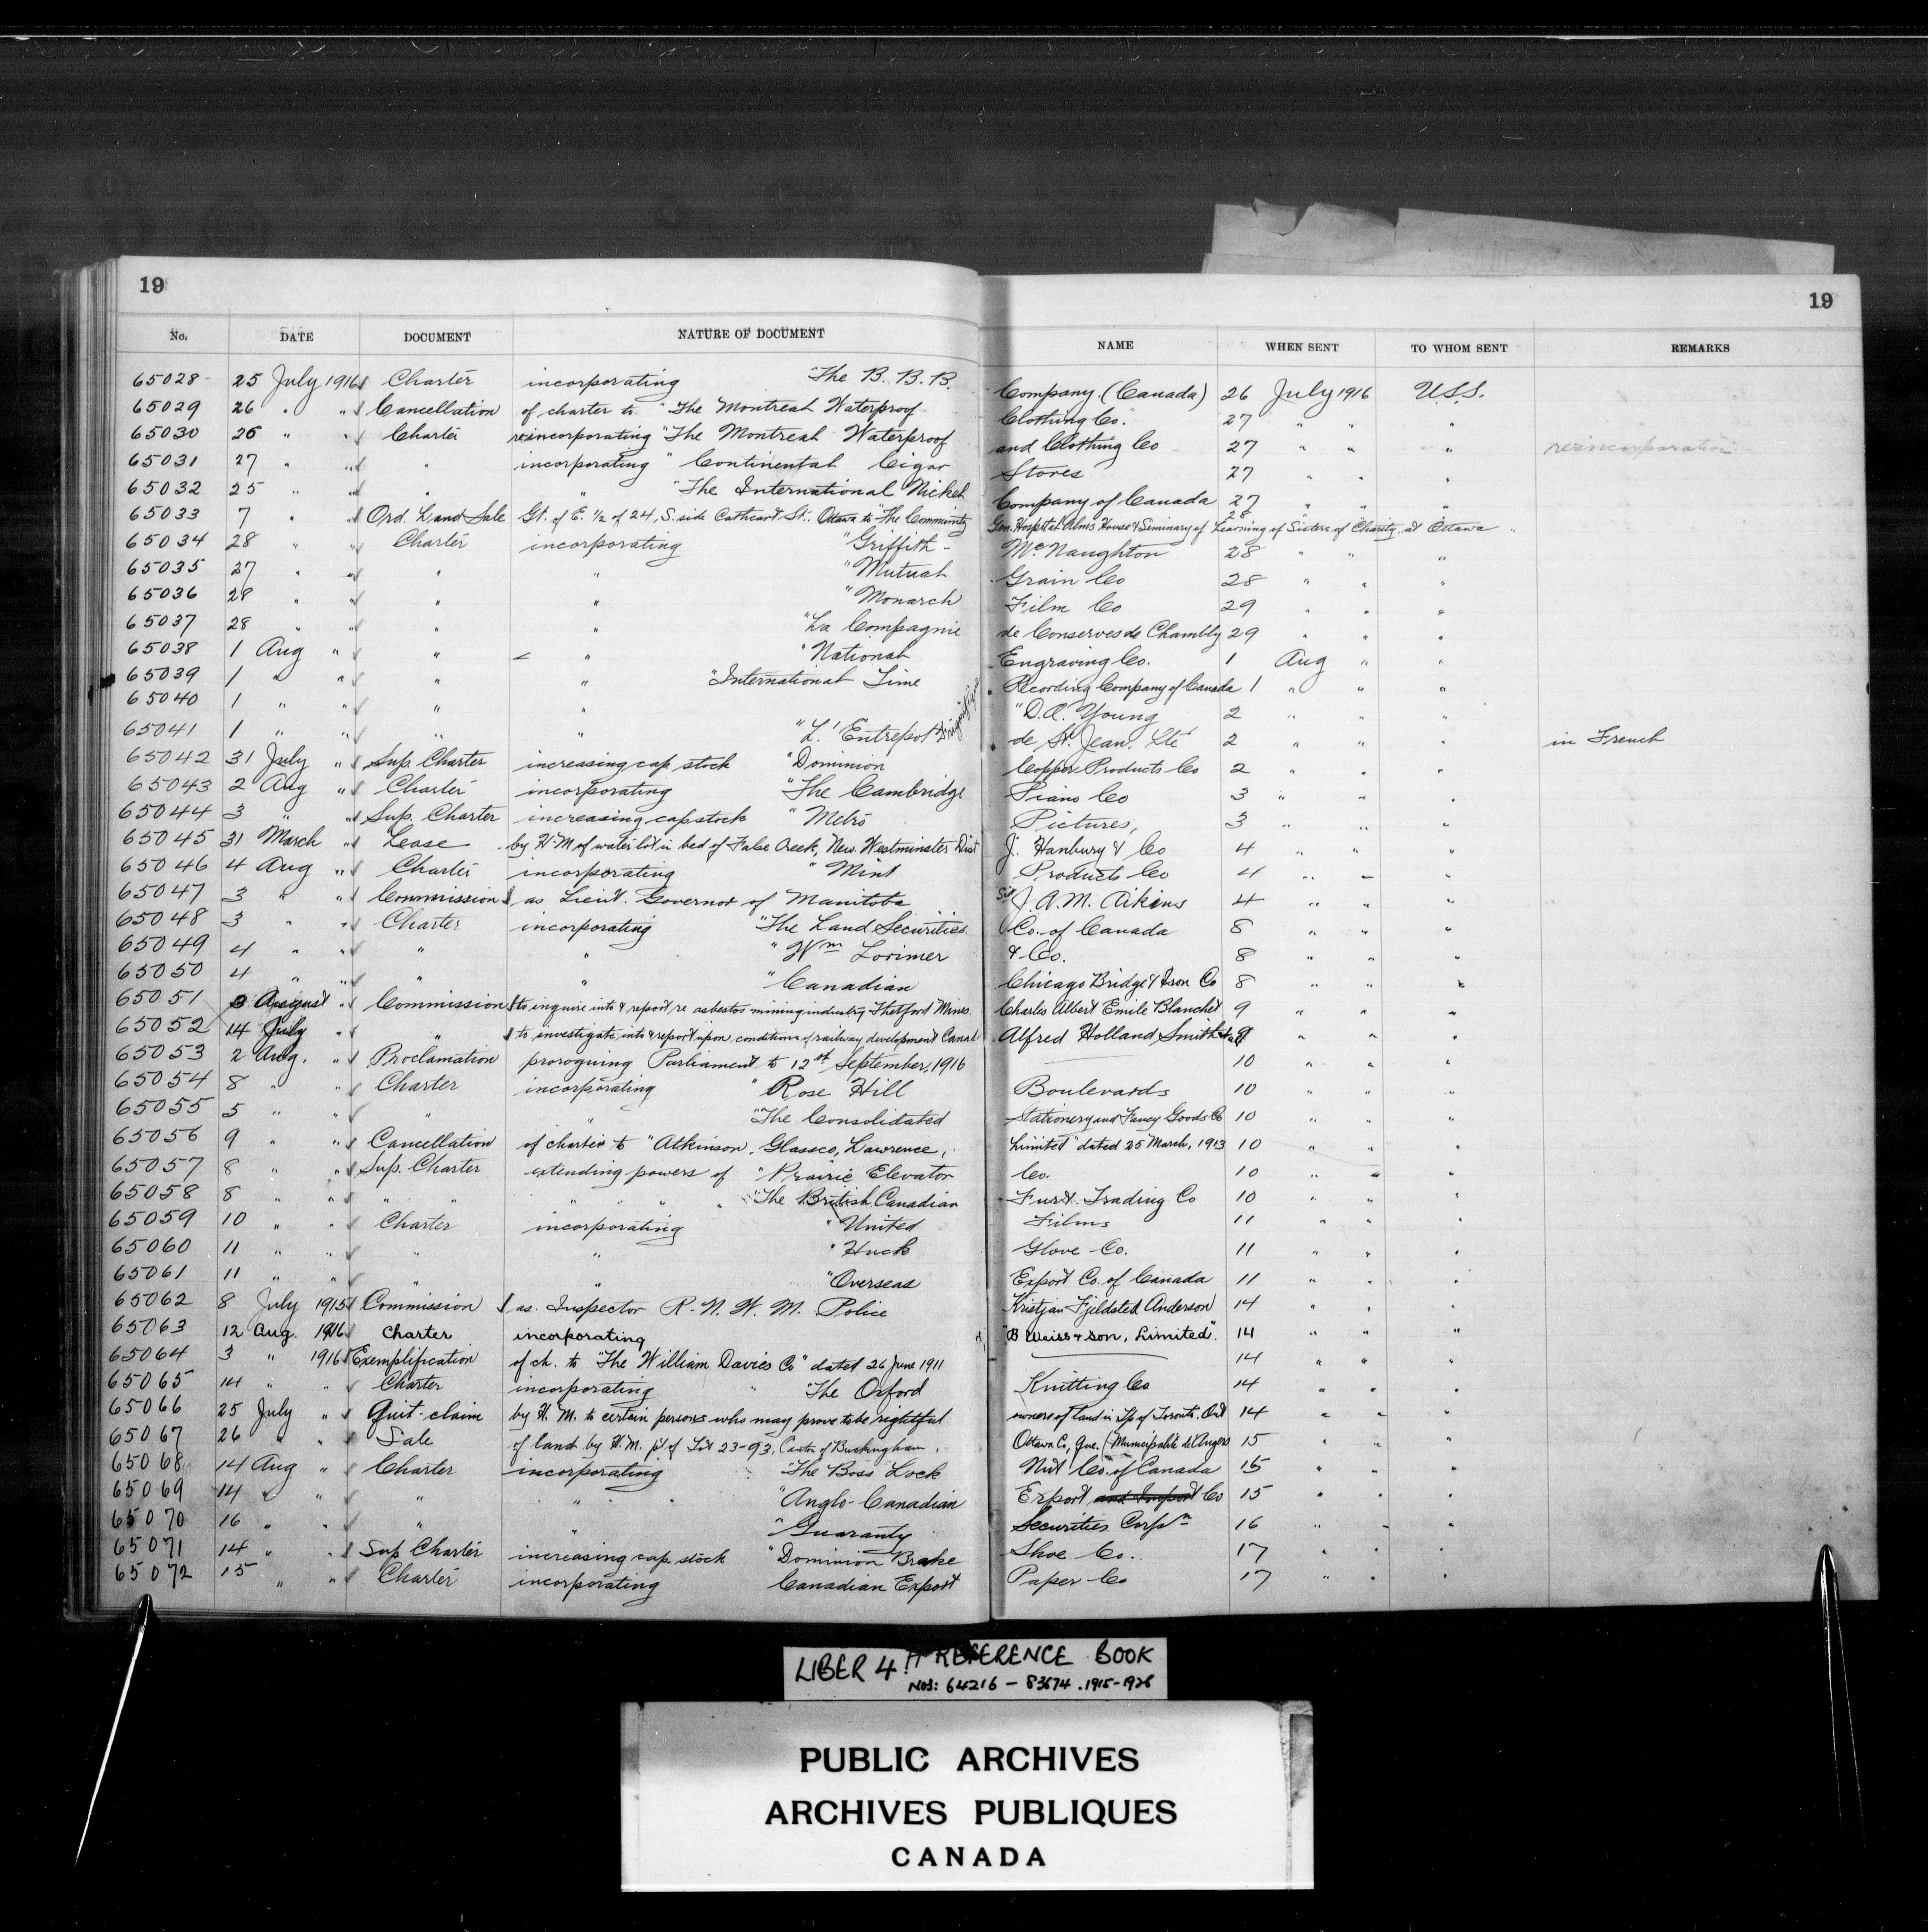 19
19
No. DATE DOCUMENT NATURE OF DOCUMENT NAME WHEN SENT TO WHOM SENT REMARKS
65028 25 July 1916 Charter incorporating "The B. B. B. Company (Canada) 26 July 1916 U.S.S.
65029 26 " " Cancellation of charter to "The Montreal Waterproof Clothing Co." 27 " " "
65030 26 " " Charter reincorporating "The Montreal Waterproof and Clothing Co 27 " " " reincorporation
65031 27 " " " incorporating "Continental Cigar Stores 27 " " "
65032 25 " " " " "The International Nickel Company of Canada 27 " " "
65033 7 " " Ord. Land Sale Gt. of E. 1/2 of 24, S. side Cathcart St. Ottawa to "The Community Gen. Hospital Alms House & Seminary of Learning of Sisters of Charity at Ottawa 28 "
65034 28 " " Charter incorporating "Griffith - McNaughton 28 " " "
65035 27 " " " " "Mutual Grain Co 28 " " "
65036 28 " " " " "Monarch Film Co 29 " " "
65037 28 " " " " "La Compagnie de Conserves de Chambly 29 " " "
65038 1 Aug " " " "National Engraving Co. 1 Aug " "
65039 1 " " " " "International Time Recording Company of Canada 1 " " "
65040 1 " " " " "D.A. Young 2 " " "
65041 1 " " " " "L'Entrepot Frigorifique de St. Jean. Lté 2 " " " in French
65042 31 July " Sup. Charter increasing cap stock "Dominion Copper Products Co 2 " " "
65043 2 Aug " Charter incorporating "The Cambridge Piano Co 3 " " "
65044 3 " " Sup. Charter increasing cap stock "Metro Pictures, 3 " " "
65045 31 March " Lease by H.M. of water lot in bed of False Creek, New Westminster Dist J. Hanbury & Co 4 " " "
65046 4 Aug " Charter incorporating "Mint Products Co 4 " " "
65047 3 " " Commission as Lieut. Governor of Manitoba Sir J. A. M. Aikins 4 " " "
65048 3 " " Charter incorporating "The Land Securities Co. of Canada 8 " " "
65049 4 " " " " "Wm Lorimer & Co. 8 " " "
65050 4 " " " " "Canadian Chicago Bridge & Iron Co 8 " " "
65051 3 August " Commission to inquire into & report re asbestos mining industry Thetford Mines Charles Albert Emile Blanchet 9 " " "
65052 14 July " " to investigate into & report upon conditions of railway development Canad Alfred Holland Smith et al 9 " " "
65053 2 Aug. " Proclamation proroguing Parliament to 12th September, 1916 10 " " "
65054 8 " " Charter incorporating "Rose Hill Boulevards 10 " " "
65055 5 " " " " "The Consolidated Stationery and Fancy Goods Co 10 " " "
65056 9 " " Cancellation of charter to "Atkinson, Glassco, Lawrence, Limited" dated 25 March, 1913 10 " " "
65057 8 " " Sup. Charter extending powers of "Prairie Elevator Co. 10 " " "
65058 8 " " " " " " " "The British Canadian Fur & Trading Co 10 " " "
65059 10 " " Charter incorporating "United Films 11 " " "
65060 11 " " " " "Huck Glove Co. 11 " " "
65061 11 " " " " "Overseas Export Co. of Canada 11 " " "
65062 8 July 1915 Commission as Inspector R. N. W. M. Police Kristjan Fjeldsted Anderson 14 " " "
65063 12 Aug. 1916 Charter incorporating "B Weiss & Son, Limited". 14 " " "
65064 3 " 1916 Exemplification of ch. to "The William Davies Co" dated 26 June 1911 14 " " "
65065 14 " " Charter incorporating "The Oxford Knitting Co 14 " " "
65066 25 July " Quit-claim by H.M. to certain persons who may prove to be rightful owners of land in Tp of Toronto. Ont 14 " " "
65067 26 " " Sale of land by H.M. pt of Lot 23-93, Canton of Buckingham, Ottawa Co, Que. (Municipalité de l'Angers 15 " " "
65068 14 Aug " Charter incorporating "The Boss Lock Nut Co. of Canada 15 " " "
65069 14 " " " " "Anglo-Canadian Export and Import Co 15 " " "
65070 16 " " " " "Guaranty Securities Corpn 16 " " "
65071 14 " " Sup Charter increasing cap. stock "Dominion Brake Shoe Co. 17 " " "
65072 15 " " Charter incorporating Canadian Export Paper Co 17 " " "
LIBER 4 REFERENCE BOOK
NOS: 64216 - 83674. 1915-1926
PUBLIC ARCHIVES
ARCHIVES PUBLIQUES
CANADA